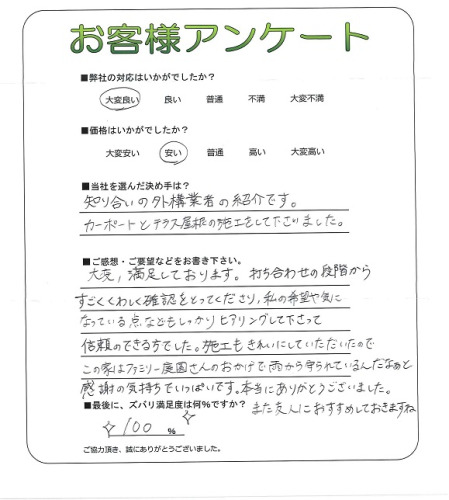 お客様アンケート
■弊社の対応はいかがでしたか？
大変良い 良い 普通 不満 大変不満
■価格はいかがでしたか？
大変安い 安い 普通 高い 大変高い
■当社を選んだ決め手は？
知り合いの外構業者の紹介です。
カーポートとテラス屋根の施工をして下さいました。
■ご感想・ご要望などをお書き下さい。
大変、満足しております。打ち合わせの段階から
すごくくわしく確認をとってくださり、私の希望や気に
なっている点などもしっかりヒアリングして下さって
信頼のできる方でした。施工もきれいにしていただいたので
この家はファミリー庭園さんのおかげで雨から守られているんだなぁと
感謝の気持ちでいっぱいです。本当にありがとうございました。
また友人におすすめしておきますね
■最後に、ズバリ満足度は何％ですか？
100 %
ご協力頂き、誠にありがとうございました。